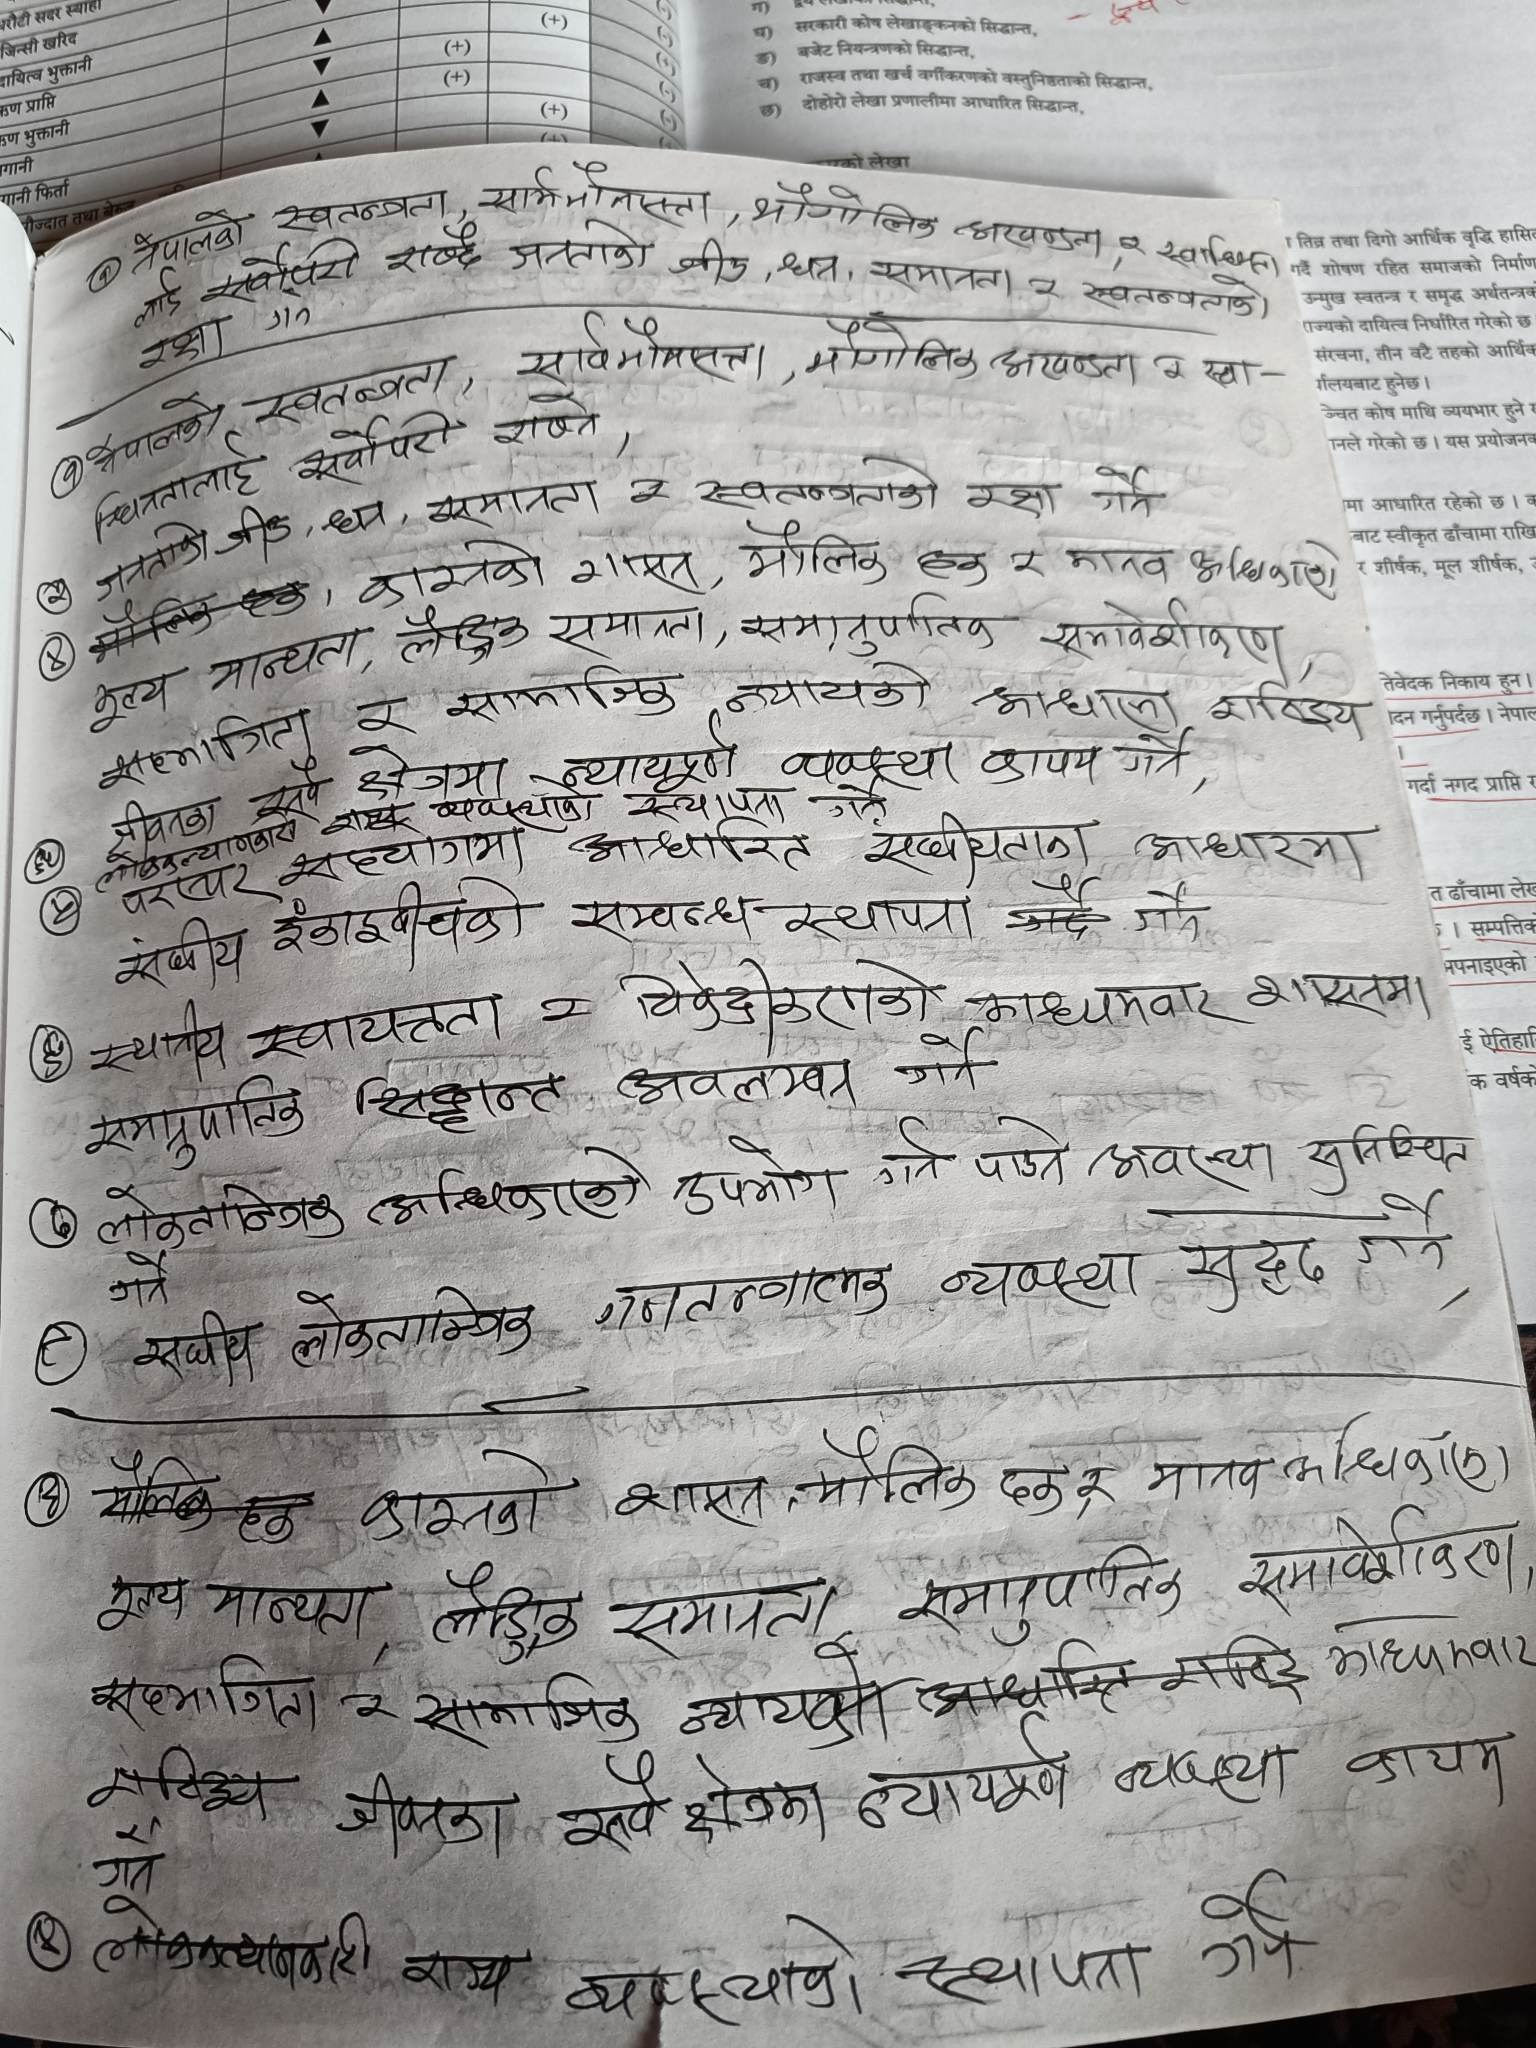 रौटी सदर स्याहा
जिन्सी खरिद
दायित्व भुक्तानी
ऋण प्राप्ति
ऋण भुक्तानी
गानी
गानी फिर्ता
(+)
(+)
(+)
(+)
(+)
घ) सरकारी कोष लेखाङ्कनको सिद्धान्त,
ङ) बजेट नियन्त्रणको सिद्धान्त,
च) राजस्व तथा खर्च वर्गीकरणको वस्तुनिष्ठताको सिद्धान्त,
छ) दोहोरो लेखा प्रणालीमा आधारित सिद्धान्त,
को लेखा
① नेपालको स्वतन्त्रता, सार्वभौमसत्ता, भौगोलिक अखण्डता, र स्वाधिनता
लाई सर्वोपरी राख्दै जनताको जीउ, धन, समानता र स्वतन्त्रताको
रक्षा गर्न
① नेपालको स्वतन्त्रता, सार्वभौमसत्ता, भौगोलिक अखण्डता र स्वा-
धिनतालाई सर्वोपरी राख्ने,
② जनताको जीउ, धन, समानता र स्वतन्त्रताको रक्षा गर्ने
मौलिक हक, कानुनको शासन, मौलिक हक र मानव अधिकारको
मूल्य मान्यता, लैङ्गिक समानता, समानुपातिक समावेशीकरण,
सहभागिता र सामाजिक न्यायको आधारमा राष्ट्रिय
जीवनका सबै क्षेत्रमा न्यायपूर्ण व्यवस्था कायम गर्ने,
लोककल्याणकारी राज्य व्यवस्थाको स्थापना गर्ने
परस्पर सहयोगमा आधारित संघीयताका आधारमा
संघीय इकाइबीचको सम्बन्ध स्थापना गर्दै गर्ने
स्थानीय स्वायत्तता र विकेन्द्रीकरणको माध्यमबाट शासनमा
समानुपातिक सिद्धान्त अवलम्बन गर्ने
लोकतान्त्रिक अधिकारको उपभोग गर्न पाउने अवस्था सुनिश्चित
गर्ने
संघीय लोकतान्त्रिक गणतन्त्रात्मक व्यवस्था सुदृढ गर्ने,
मौलिक हक कानुनको शासन, मौलिक हक र मानव अधिकारको
मूल्य मान्यता, लैङ्गिक समानता, समानुपातिक समावेशीकरण,
सहभागिता र सामाजिक न्यायको आधारित राष्ट्रि माध्यमबाट
राष्ट्रिय जीवनका सबै क्षेत्रमा न्यायपूर्ण व्यवस्था कायम
गर्ने
लोककल्याणकारी राज्य व्यवस्थाको स्थापना गर्ने
तिब्र तथा दिगो आर्थिक वृद्धि हासि
गर्दै शोषण रहित समाजको निर्माण
उन्मुख स्वतन्त्र र समृद्ध अर्थतन्त्रक
राज्यको दायित्व निर्धारित गरेको छ
संरचना, तीन वटै तहको आर्थिक
र्यालयबाट हुनेछ।
ञ्चित कोष माथि व्ययभार हुने र
नले गरेको छ। यस प्रयोजनक
मा आधारित रहेको छ। क
बाट स्वीकृत ढाँचामा राखि
र शीर्षक, मूल शीर्षक,
तिवेदक निकाय हुन।
दन गर्नुपर्दछ। नेपाल
गर्दा नगद प्राप्ति र
त ढाँचामा लेख
। सम्पत्तिक
अपनाइएको
ई ऐतिहासि
क वर्षको